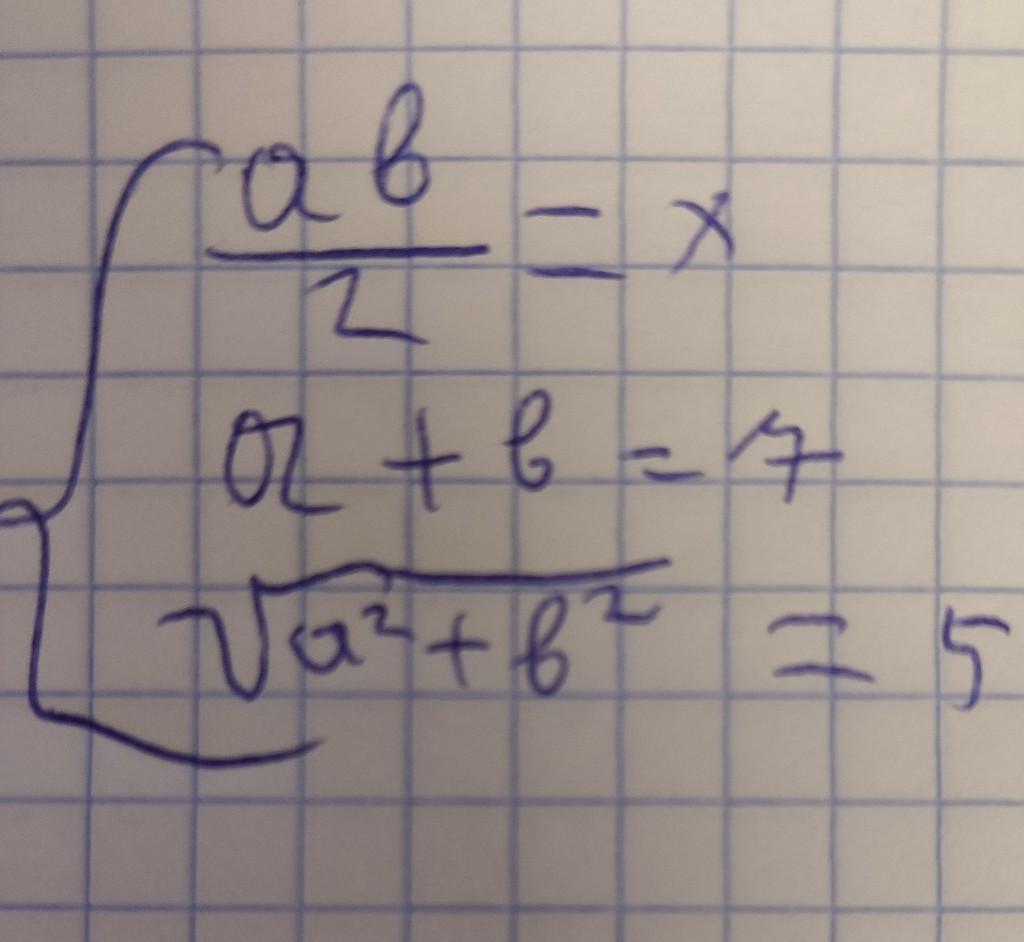 ab/2 = x
a + b = 7
√(a² + b²) = 5